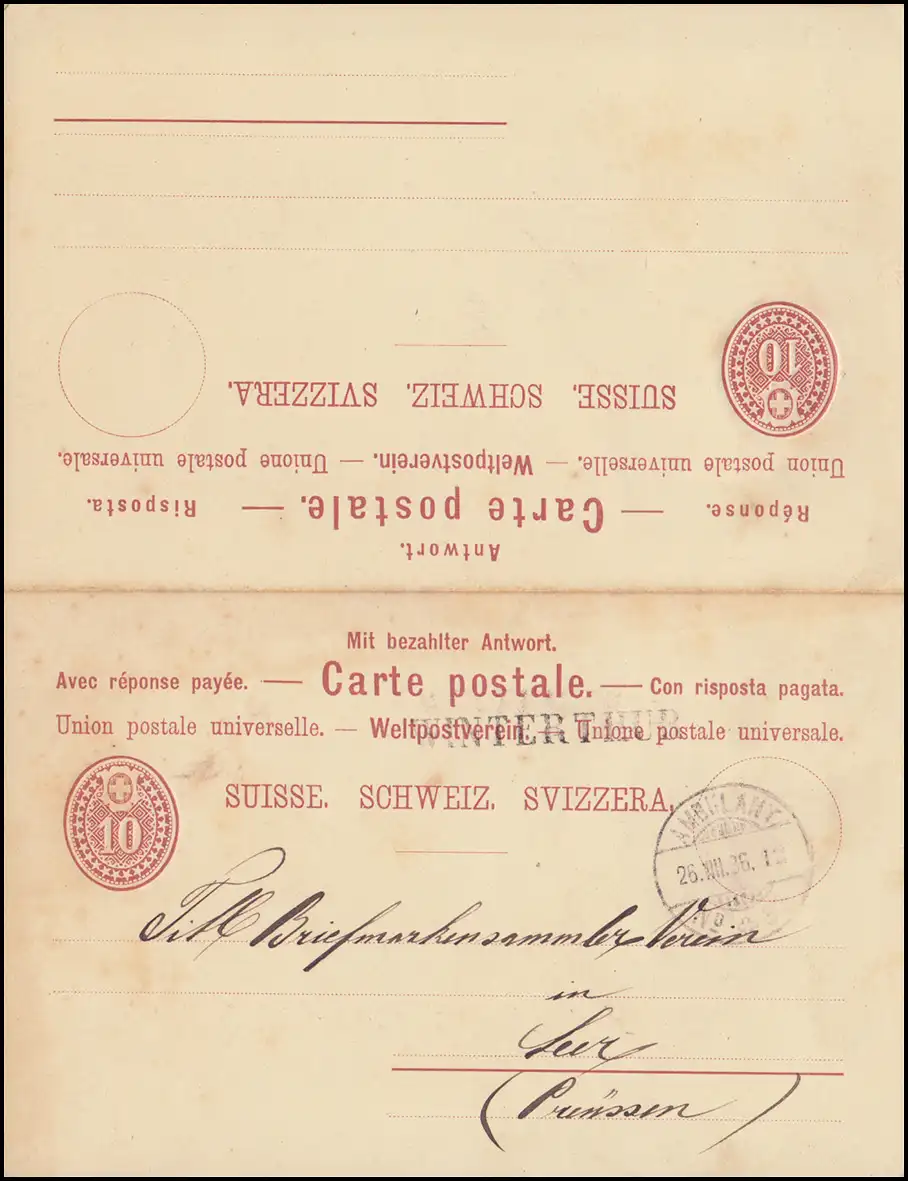 Réponse. — Carte postale. — Risposta.
Antwort.
Union postale universelle. — Weltpostverein. — Unione postale universale.
SUISSE. SCHWEIZ. SVIZZERA.
10
Mit bezahlter Antwort.
Avec réponse payée. — Carte postale. — Con risposta pagata.
Union postale universelle. — Weltpostverein. — Unione postale universale.
WINTERTHUR
SUISSE. SCHWEIZ. SVIZZERA.
10
AMBULANT
26.VIII.86.
Titl Briefmarkensammler Verein
in
Leer
(Preüssen)